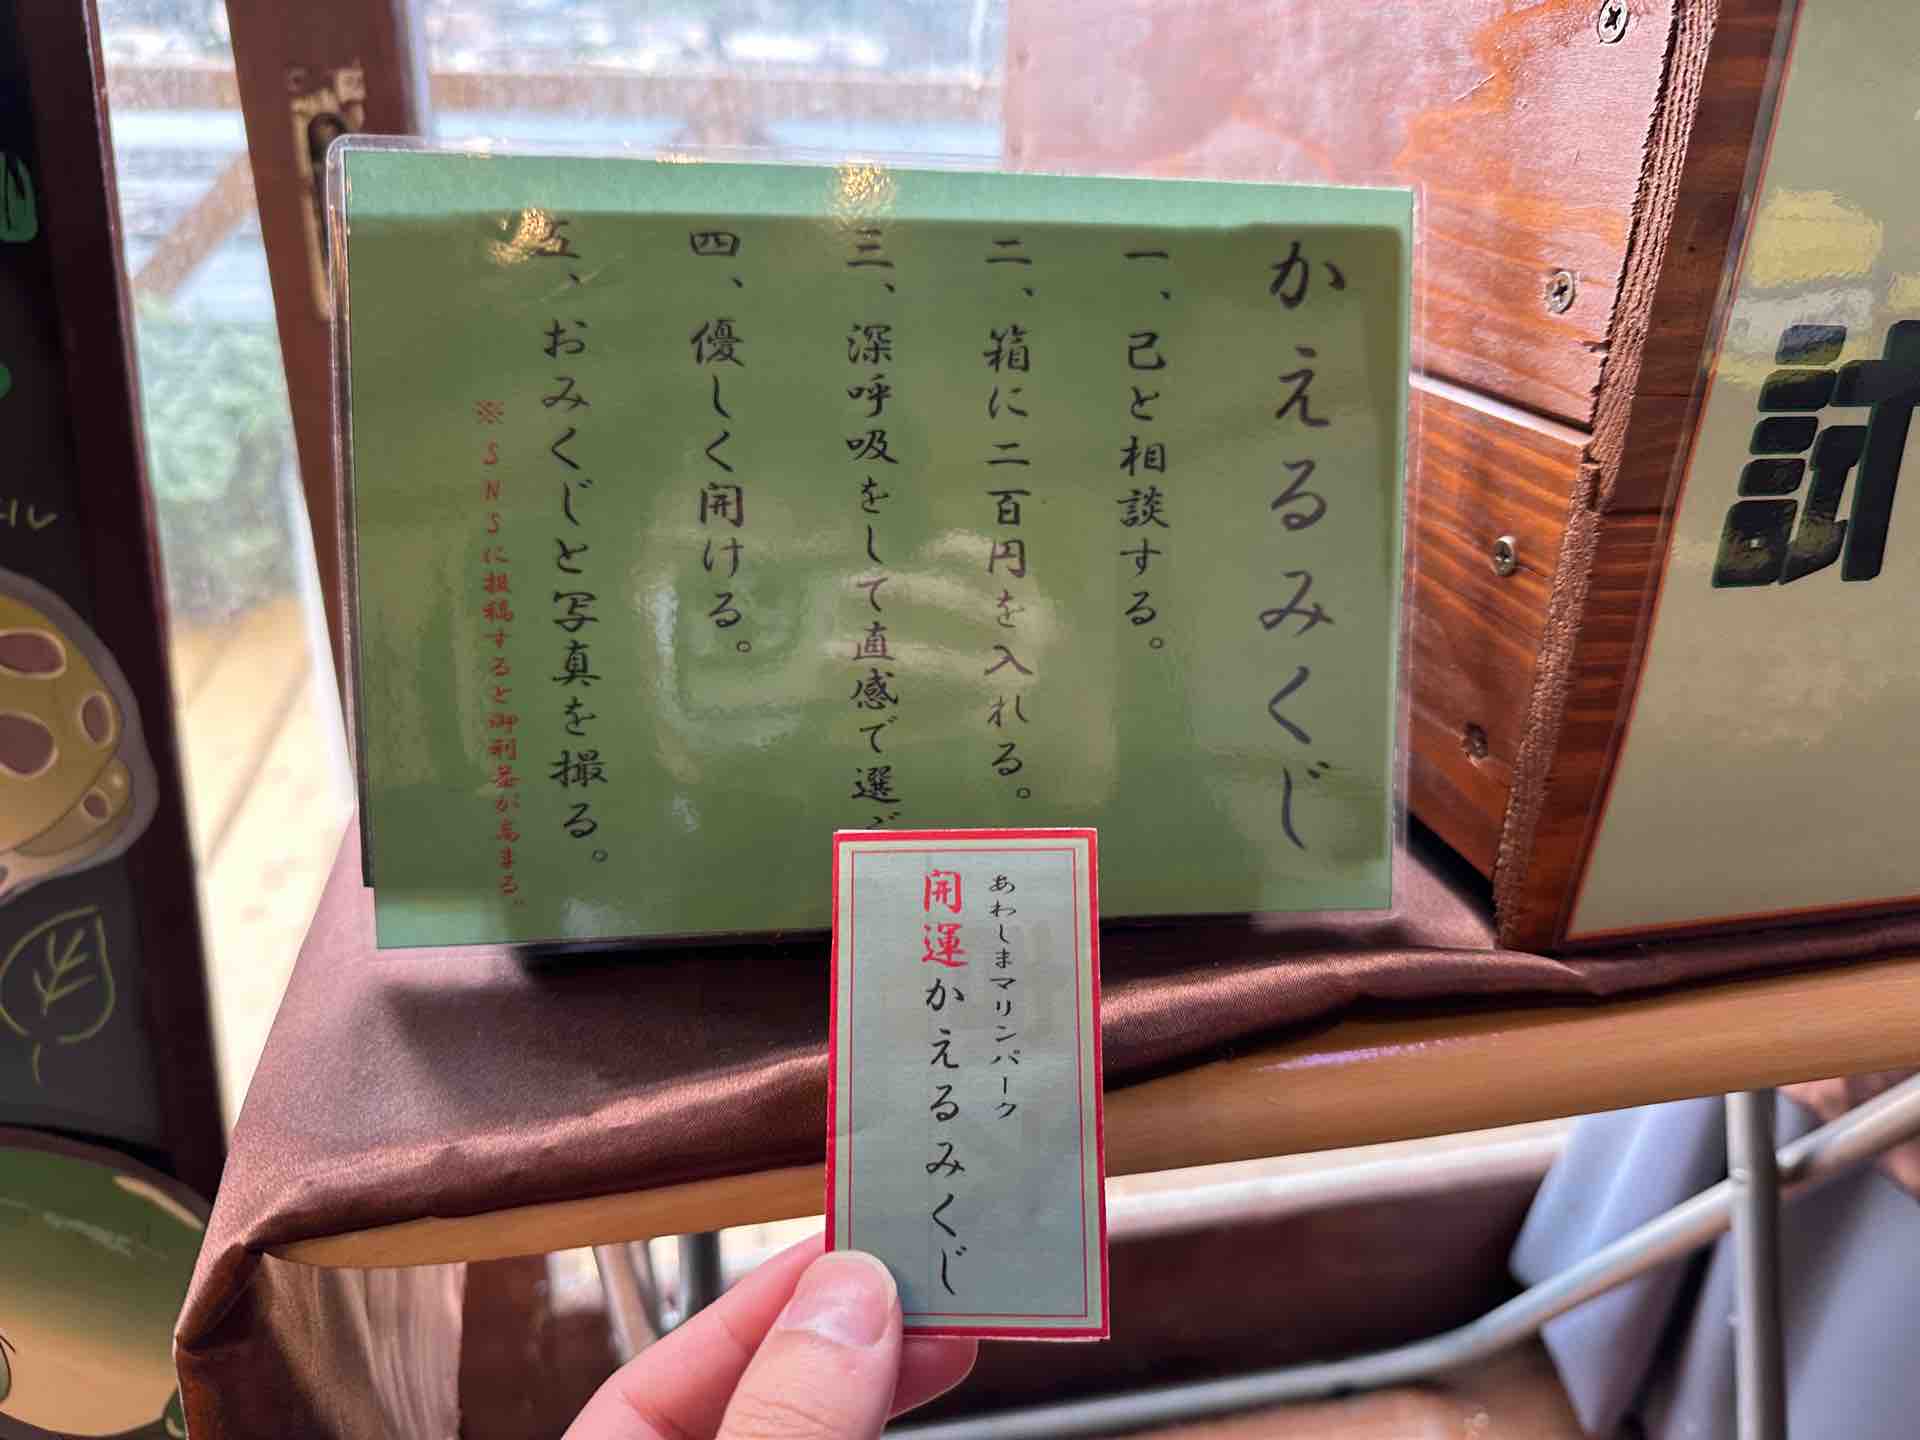 かえるみくじ
一、己と相談する。
二、箱に二百円を入れる。
三、深呼吸をして直感で選ぶ
四、優しく開ける。
五、おみくじと写真を撮る。
※SNSに投稿すると御利益が高まる。
あわしまマリンパーク
開運かえるみくじ
計